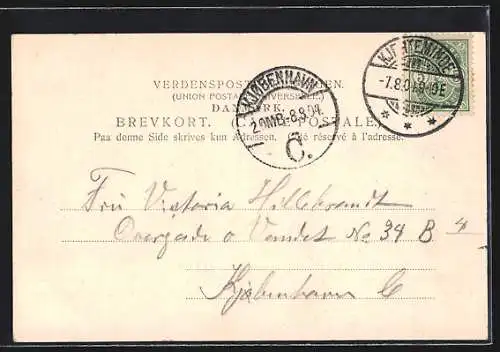 VERDENSPOST
(UNION POSTALE UNIVERSELLE)
DANMARK.
BREVKORT.
POSTALE.
Paa denne Side skrives kun Adressen. réservé à l'adresse.
KJØBENHAVN
2 OMB. 8.8.04
C.
KJERTEMINDE
-7.8.04
Fru Victoria Hillebrandt
Overgade o Vandet No 34 B 4
Kjøbenhavn C